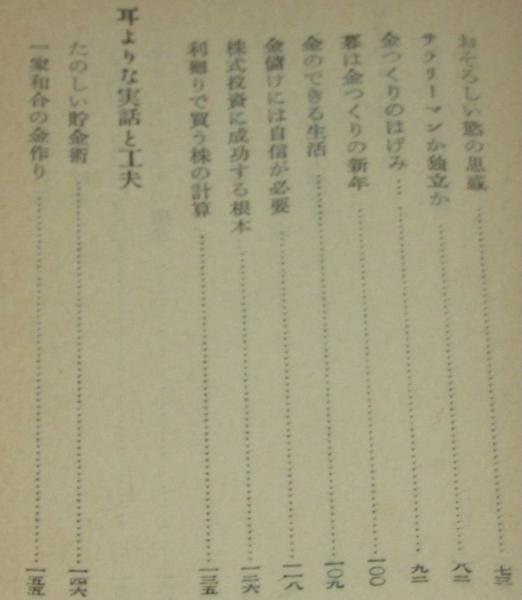 おそろしい慾の思惑……七三
サラリーマンか独立か……八二
金つくりのはげみ……九一
暮は金つくりの新年……一〇〇
金のできる生活……一〇九
金儲けには自信が必要……一一八
株式投資に成功する根本……一二六
利廻りで買う株の計算……一三五
耳よりな実話と工夫
たのしい貯金術……一四六
一家和合の金作り……一五五